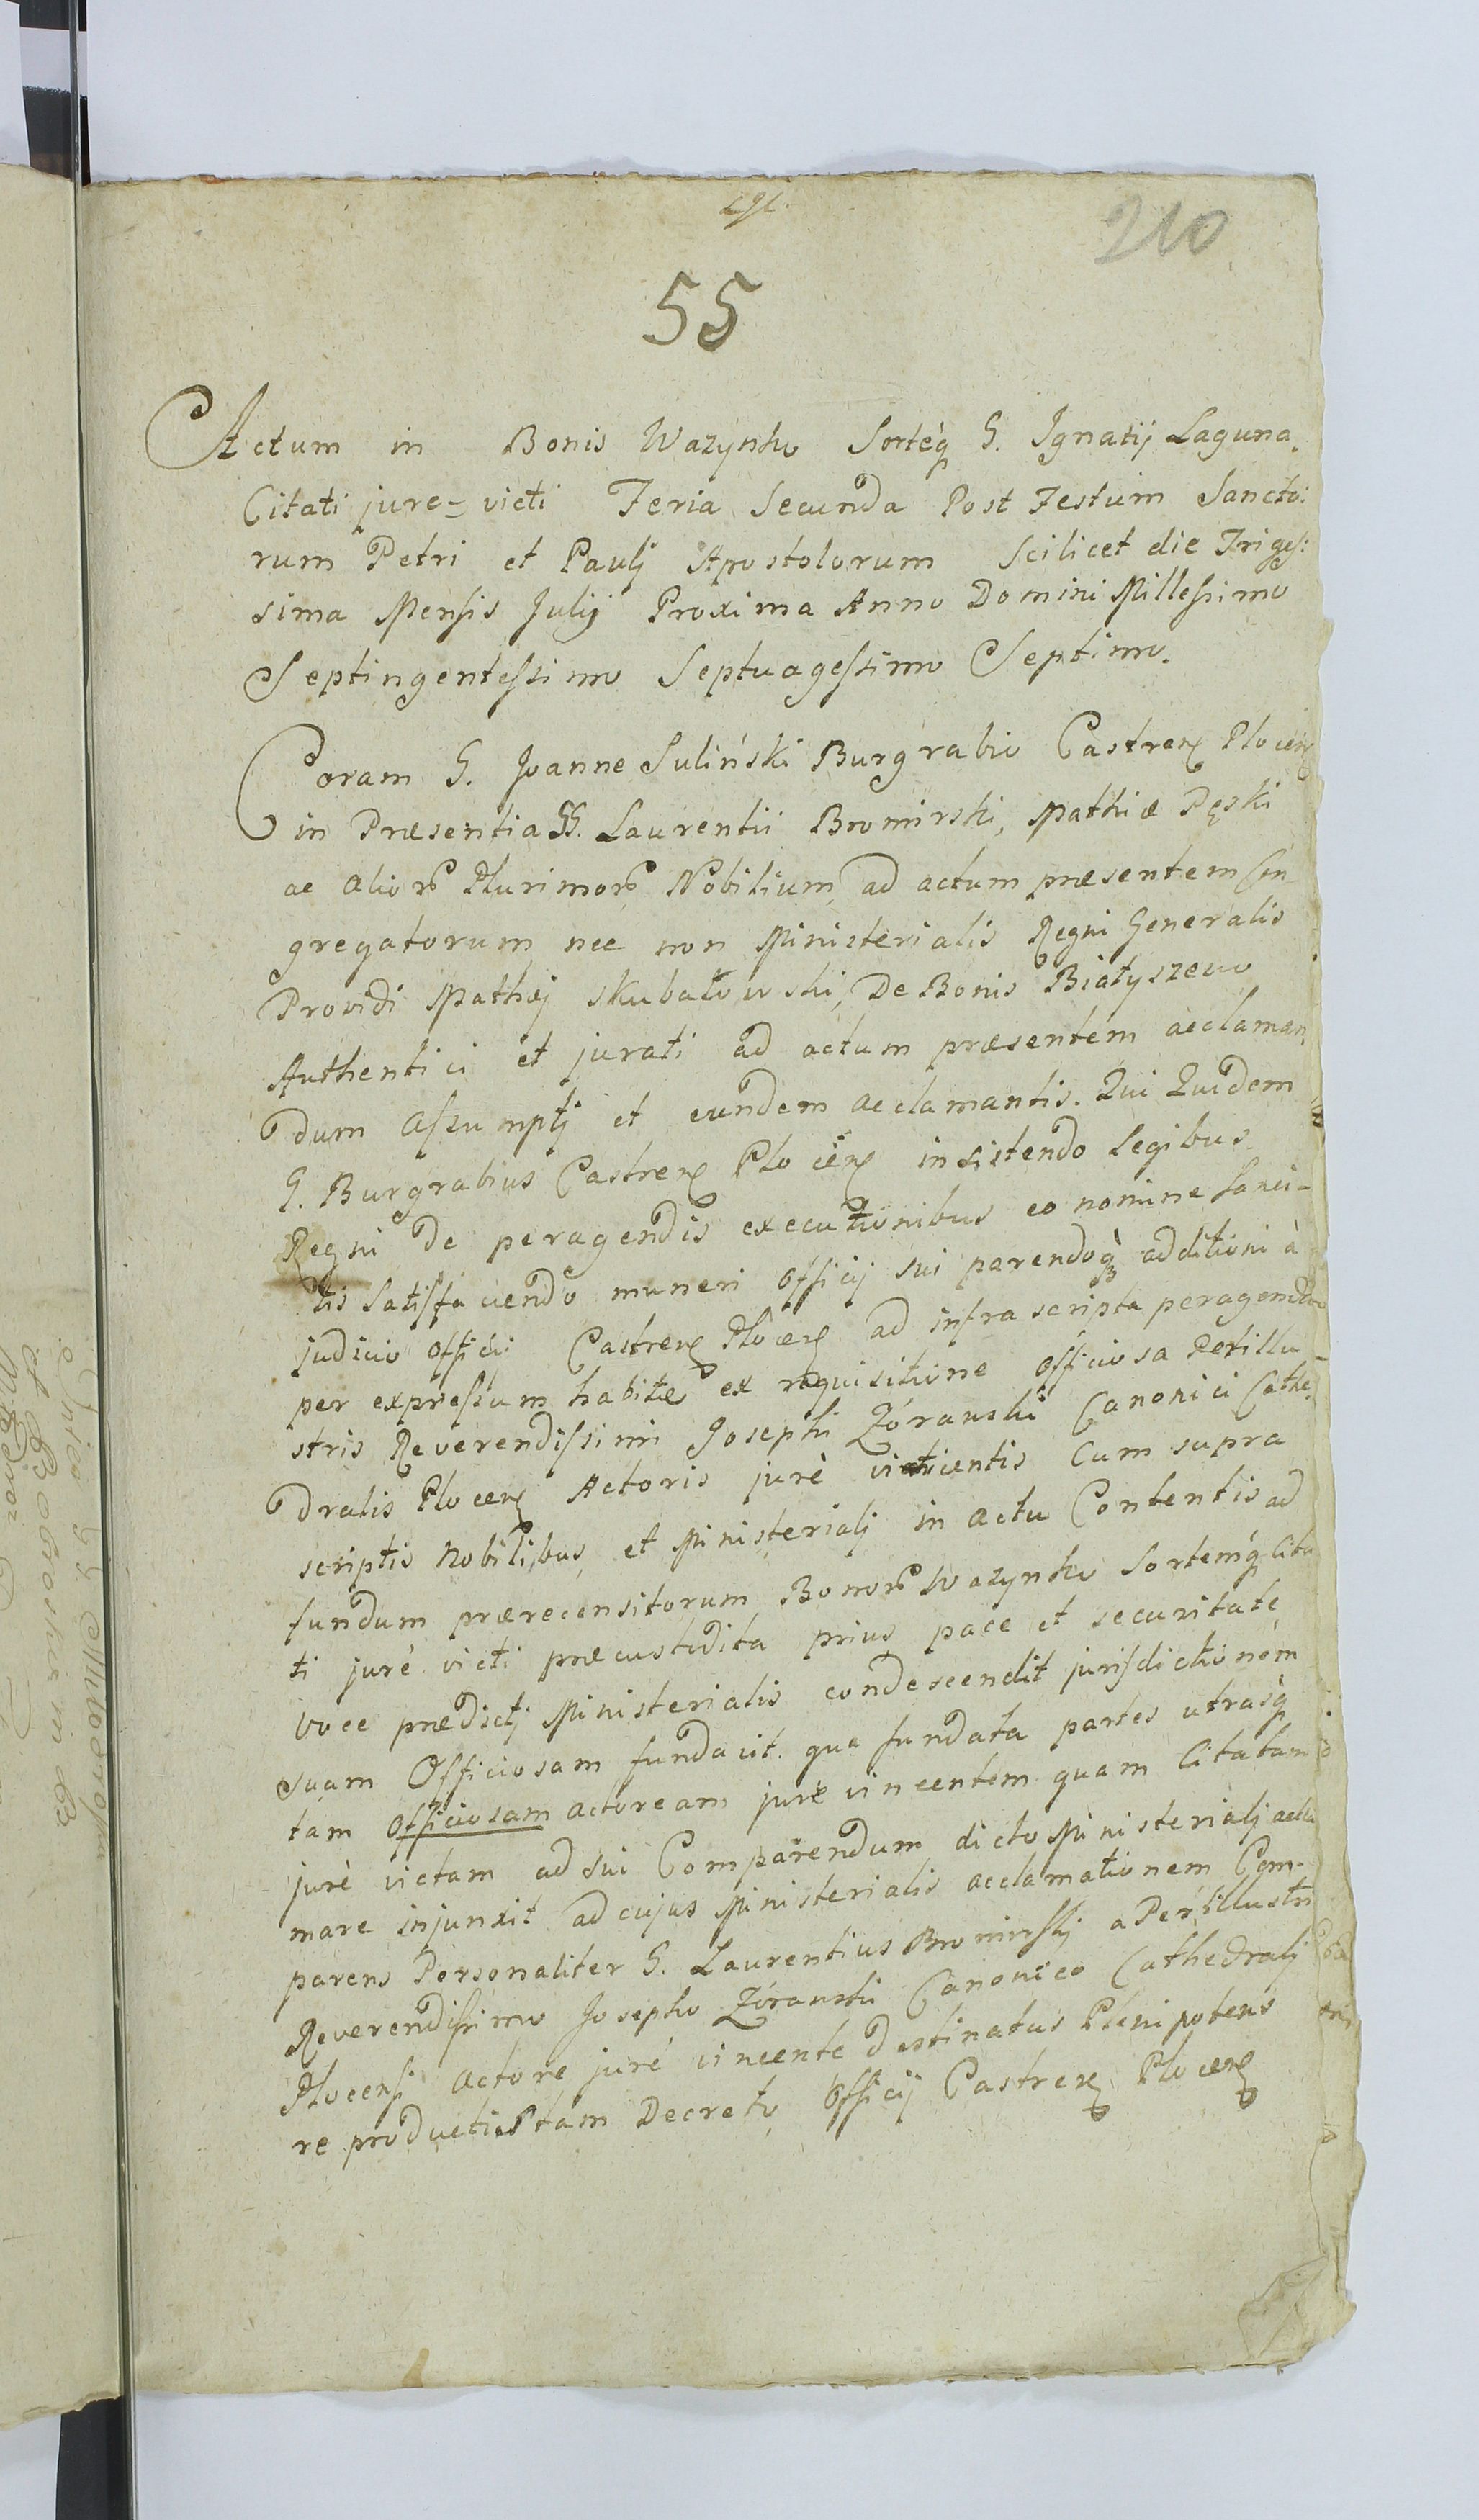 210
55
Actum in Bonis Wazynko Sorteq G. Ignatij Laguna
Citati jure-victi Feria Secunda Post Festum Sancto:
rum Petri et Paulj Apostolorum Scilicet die Triges:
sima Mensis Julij Proxima Anno Domini Millessimo
Septingentessimo Septuagessimo Septimo.
Coram G. Joanne Suliński Burgrabio Castren Plocen
in Præsentia GG. Laurentii Bromirski, Mathiæ Pęski
ac alior Plurimor Nobilium ad actum præsentem Con
gregatorum nec non Ministerialis Regni Generalis
Providi Mathej Skubałowski, De Bonis Białyszewo
Authentici et jurati ad actum præsentem acclaman
dum assumptj et eundem acclamantis. Qui Quidem
G. Burgrabius Castren Plocen insistendo legibus
Regni de peragendis executionibus eo nomine sanci-
tis satisfaciendo muneri officij sui parendoq additioni à
judicio officii Castren Plocen ad infra scripta peragenda
per expressum habitæ ex requisitione officiosa Perillu-
stris Reverendissimi Josephi Zórawski Canonici Cathe
dralis Plocen Actoris jurè vincentis cum supra
scriptis Nobilibus et Ministerialj in actu Contentis ad
fundum prærecensitorum Bonor Wazynko Sortemq Cita
ti jurè victi præcustodita prius pace et securitate
voce prædictj Ministerialis condescendit jurisdictionem
suam Officiosam fundavit. qua fundata partes utrasq
tam officiosam actoream jurè vincentem quam Citatam
jurè victam ad sui Comparendum dicto Ministerialj accla
mare injunxit ad cujus Ministerialis acclamationem Com-
parens Personaliter G. Laurentius Bromirskj a Perillustri
Reverendissimo Josepho Zórawski Canonico Cathedralj
Plocensi Actore jurè vincente destinatus Plenipotens
re productis tam Decreto Officij Castren Plocen